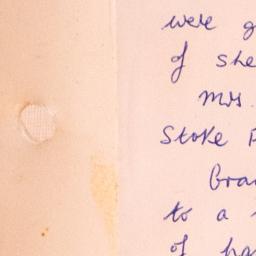 were g
of she
Mrs.
Stoke P
Bra
to a
of ha